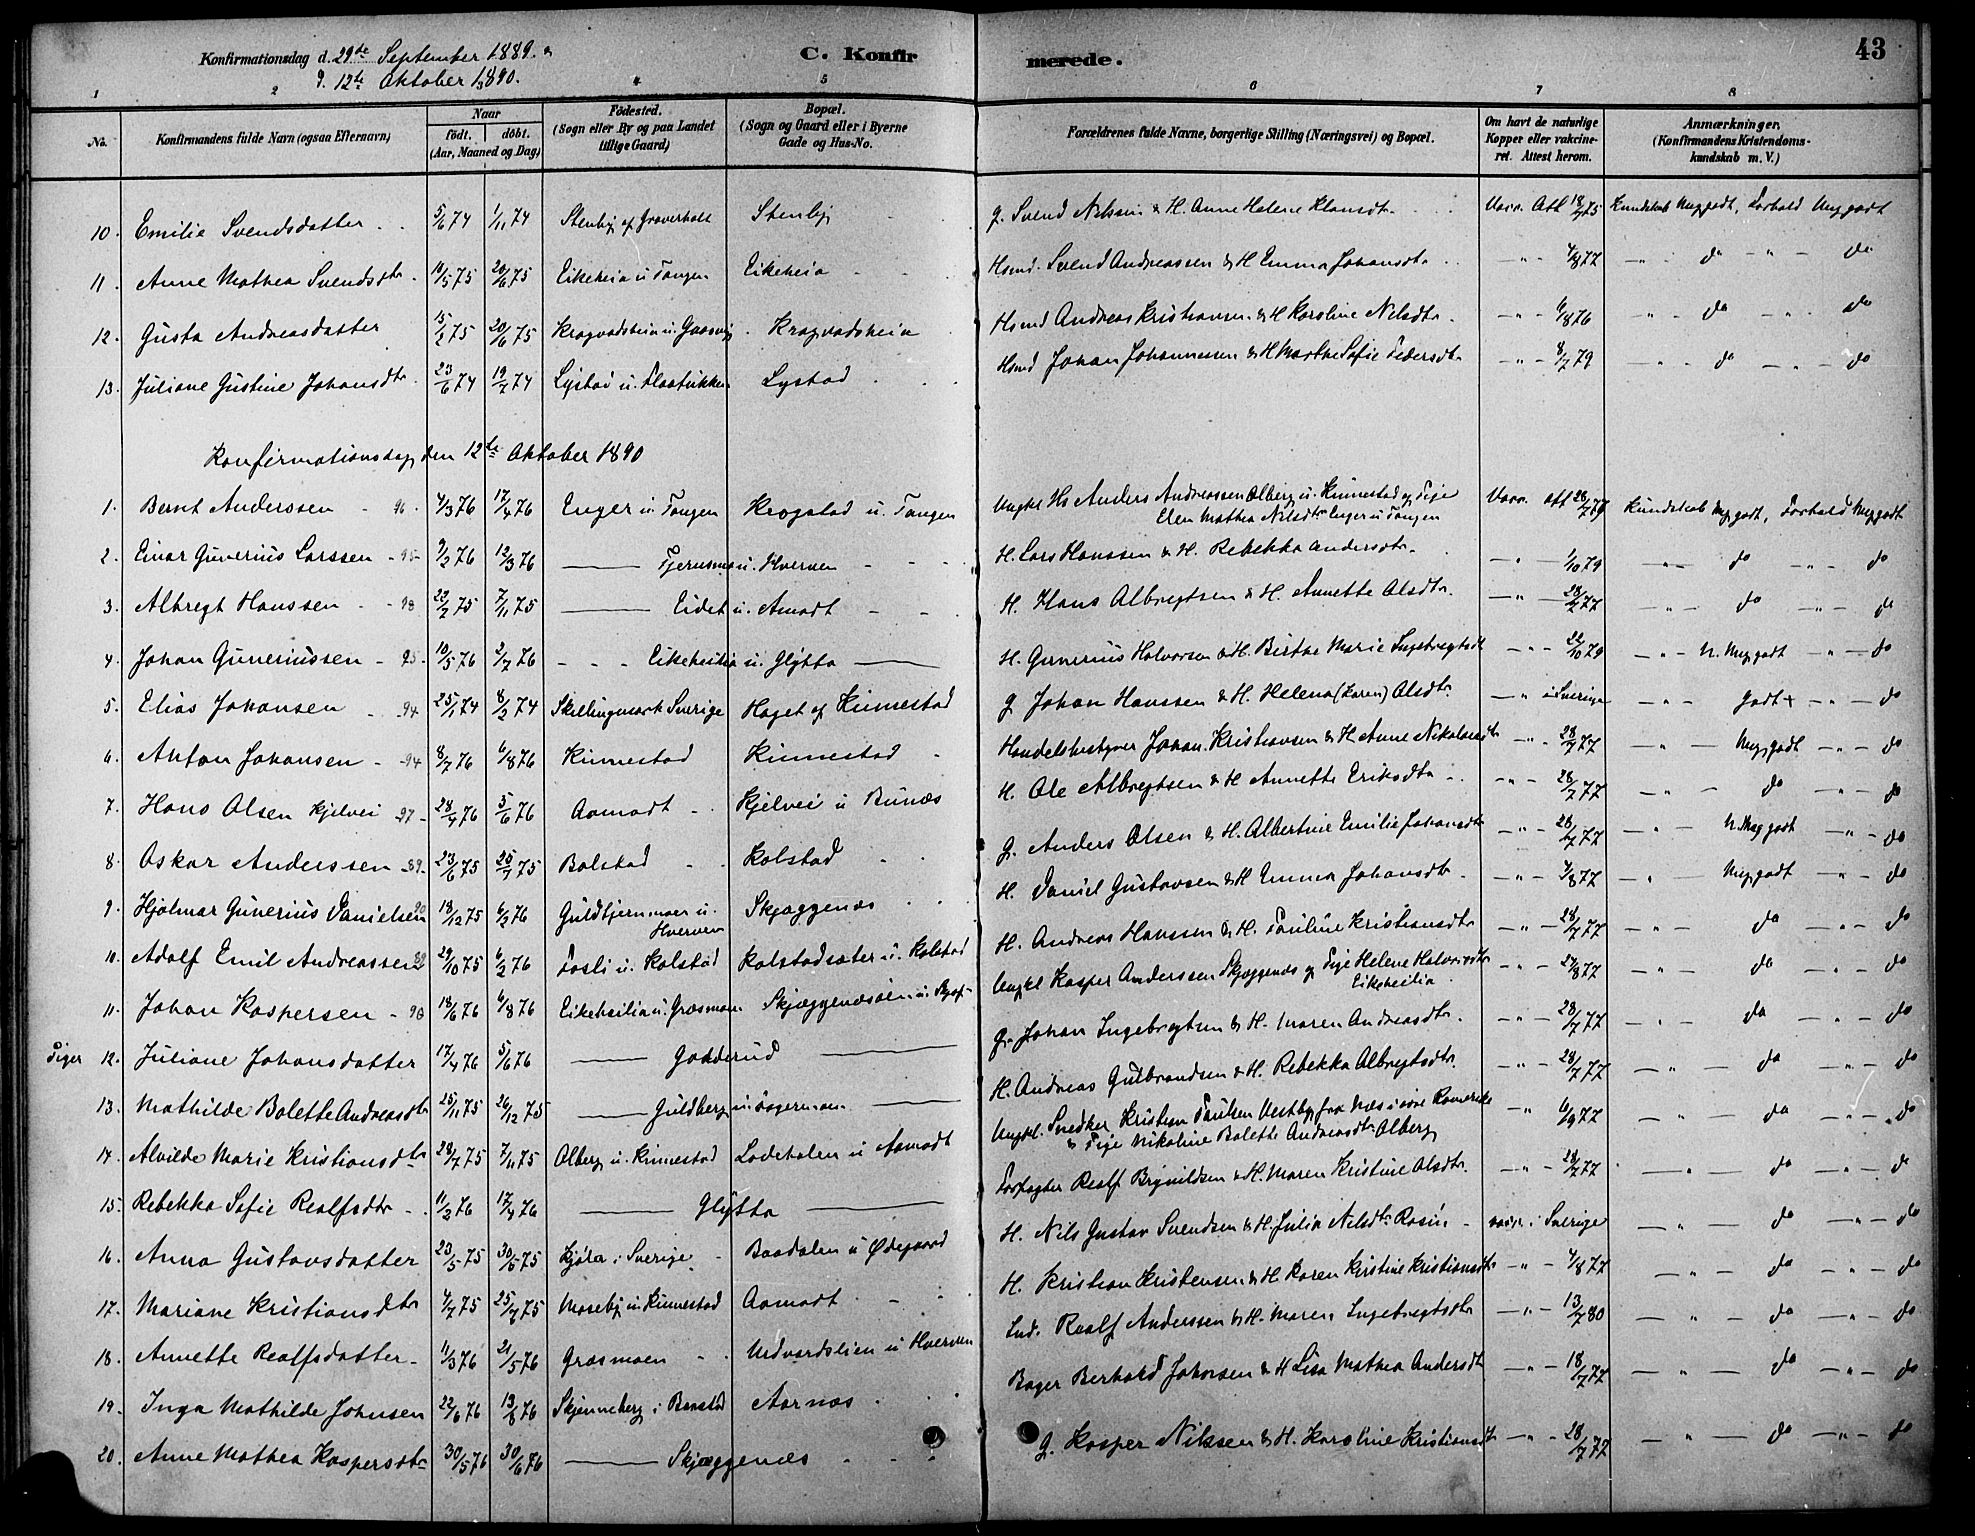 Konfirmationsdag d. 29de September 1889. &
d. 12te Oktober 1890.
C. Konfir
merede.
43
1 2 3 4 5 6 7 8
No.
Konfirmandens fulde Navn (ogsaa Efternavn)
Naar
födt. döbt.
(Aar, Maaned og Dag)
Födested.
(Sogn eller By og paa Landet
tillige Gaard)
Bopæl.
(Sogn og Gaard eller i Byerne
Gade og Hus-No.
Forældrenes fulde Navne, borgerlige Stilling (Næringsvei) og Bopæl.
Om havt de naturlige
Kopper eller vakcine-
ret. Attest herom.
Anmærkninger,
(Konfirmandens Kristendoms-
kundskab m. V.)
10. Emilie Svendsdatter 5/6 74 1/11 74 Stenby af Graverholt Stenby G. Svend Nilsen & H. Anne Helene Klausdtr. Vacc. Att 18/7 75 Kundskab Meg godt, Forhold Meg godt
11. Anne Mathea Svendsdtr. 10/5 75 20/6 75 Eikeheia u. Tangen Eikeheia Hsmd. Svend Andreassen & H Emma Johansdtr. 4/8 77 do do
12. Gusta Andreasdatter 15/2 75 20/6 75 Kragvadsheia u. Gaasvig Kragvadsheia Hsmd Andreas Kristiansen & H Karoline Nilsdtr. 6/8 76 do do
13. Juliane Gustine Johansdtr. 23/6 74 19/7 74 Lystad u. Lystad Hsmd Johan Johannessen & H Marthe Sofie Pedersdtr 8/7 79 do do
Konfirmationsdag den 12te Oktober 1890
1. Bernt Anderssen 96 4/3 76 17/4 76 Enger u. Tangen Krogstad u. Tangen Ungkl Hs Anders Andreassen Alberg u. Kinnestad og Pige
Elen Mathea Nilsdtr Enger u Tangen Vacc. att 28/7 79 Kundskab Meg godt, Forhold Meg godt
2. Einar Gunerius Larssen 95 9/2 76 12/3 76 Tjernsmo u. Hverven H. Lars Hanssen & H. Rebekka Andersdtr. 1/10 79 do do
3. Albregt Hanssen 98 22/2 75 7/11 75 Eidet u. Amodt H. Hans Albregtsen & H. Annette Olsdtr. 28/7 77 do do
4. Johan Guneriussen 95 10/5 76 2/7 76 Eikeheilia u. Glytta H. Gunerius Halvorsen & H. Birthe Marie Ingebregtsdtr 22/10 79 N. Meg godt do
5. Elias Johansen 94 25/1 74 8/2 74 Skillingmark Sverige Haget af Kinnestad G Johan Hanssen & H. Helena (Karen) Olsdtr. i Sverige Godt+ do
6. Anton Johansen 94 8/7 76 6/8 76 Kinnestad Kinnestad Handelsbestyrer Johan Kristiansen & H. Anne Nikolaisdtr 28/7 77 Meg godt do
7. Hans Olsen Kjelvei 97 28/4 76 5/6 76 Aamodt Kjelvei u Bunæs H. Ole Albregtsen & H Annette Eriksdtr 28/7 77 do do
8. Oskar Anderssen 89 23/6 75 25/7 75 Bolstad Kolstad G. Anders Olsen & H. Albertine Emilie Johansdtr 28/7 77 N. Meg godt do
9. Hjalmar Gunerius Danielsen 90 18/12 75 6/2 76 Guldtjernmoen u.
Hverven Skjæggenæs H. Daniel Gustavsen & H Emma Johansdtr 4/8 77 Meg godt do
10. Adolf Emil Andreassen 29/10 75 6/2 76 Fosli u. Kolstad Kolstadsæter u. Kolstad H. Andreas Hanssen & H. Pauline Kristiansdtr 28/7 77 do do
11. Johan Kaspersen 90 18/6 76 6/8 76 Eikeheilia u. Græsmoen Skjæggenæsøien u. Ungkl Kasper Anderssen Skjæggenæs og Pige Helene Halvorsdtr
Eikeheilia 27/8 77 do do
Piger 12. Juliane Johansdatter 17/4 76 5/6 76 Godderud G. Johan Ingebregtsen & H. Maren Andreasdtr. 28/7 77 do do
13. Mathilde Bolette Andreasdtr 25/11 75 26/12 75 Guldberg u. H. Andreas Gulbrandsen & H. Rebekka Albregtsdtr. 28/7 77 do do
14. Alvilde Marie Kristiansdtr 28/7 75 7/11 75 Alberg u. Kinnestad Ladehalen u Aamodt Ungkl. Snedker Kristian Paulsen Vestby fra Næs i øvre Romerike
& Pige Nikoline Bolette Andreasdtr Alberg 6/9 77 do do
15. Rebekka Sofie Realfsdtr 11/2 76 17/4 76 Glytta Forpagter Realf Brynildsen & H. Maren Kristine Olsdtr. 28/7 77 do do
16. Anna Gustavsdatter 23/5 75 30/5 75 Kjøla i Sverige Baadalen u Ødegaard H. Nils Gustav Svendsen & H. Julia Nilsdtr Rosin vacc. i Sverige do do
17. Mariane Kristiansdtr 4/7 75 25/7 75 Moseby u. Kinnestad Aamodt H. Kristian Kristensen & H Karen Kristine Kristiansdtr 4/8 77 do do
18. Annette Realfsdatter 11/3 76 21/5 76 Græsmoen Udvardslien u Hverven Ind. Realf Anderssen & H. Maren Ingebregtsdtr 13/7 80 do do
19. Inga Mathilde Johnsen 22/6 76 13/8 76 Skjenneberg i Aarnæs Bager Berhard Johnsen & H Lisa Mathea Andersdtr 18/7 77 do do
20. Anne Mathea Kaspersdtr 30/5 76 30/6 76 Skjæggenæs G. Kasper Nilssen & H. Karoline Kristiansdtr 28/7 77 do do